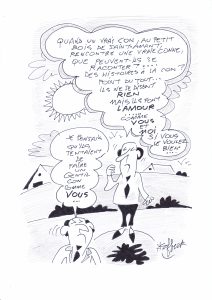 QUAND UN VRAI CON, AU PETIT
BOIS DE SAINT-AMANT,
RENCONTRE UNE VRAIE CONNE,
QUE PEUVENT-ILS SE
RACONTER ?...
DES HISTOIRES À LA CON ?
POINT DU TOUT !
ILS NE SE DISENT
RIEN
MAIS ILS FONT
L'AMOUR
COMME
VOUS
ET
MOI
SI VOUS
LE VOULEZ
BIEN
JE PENSAIS
QU'ILS
TENTAIENT
DE
FAIRE
UN
GENTIL
CON
COMME
VOUS